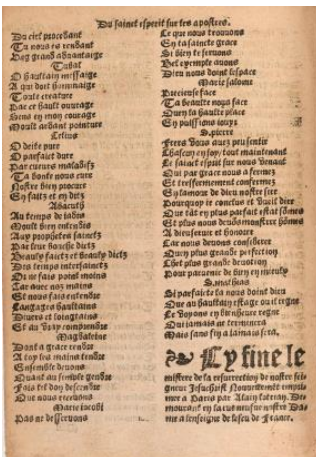 Du sainct esperit sur les apostres.
Du ciel procedant
Tu nous es rendant
Ung grand advantaige
Tubal
O haultain messaige
A qui doit hommaige
Toute creature
Par ce hault ouvrage
Sens en mon courage
Moult ardant pointure
Celius
O deite pure
O parfaict
Par cueurs maladifz
Ta bonte nous cure
Nostre bien procure
En faitz et en ditz
Abacuth
Au temps de iadis
Moult bien entendis
Aux prophetes sainctz
Par leur bouche dictz
Beaulx faictz et beaulx dictz
Des temps
Or ne fais point moins
Car avec noz mains
Et nous fais entendre
Langages haultains
Divers et loingtains
Et au vray comprendre
Magdaleine
Dont a grace rendre
A toy les mains tendre
Ensemble devons
Quant au
Fais ted doy descendre
Que nous recevons
Marie iacobi
Pas ne desservons
Ce que nous trouvons
En ta saincte grace
Si bien te servons
Bel exemple avons
Dieu nous doint lespace
Marie salome
Precieuse face
Ta beaulte nous face
Quen ta haulte place
En puissions iouyr
S. pierre
Freres vous avez peu sentir
Chascun en soy tout maintenant
Le sainct esprit sur nous venant
Qui par grace nous a fermez
Et tresfermement confermez
En lamour de dieu nostre sire
Pourquoy ie conclus et vueil dire
Que tāt en plus parfait estat sōmes
Et plus nous devōs monstrer hōmes
A dieu servir et honorer
Car nous devons considerer
Quen plus grande perfection
Chet plus grande devotion
Pour parvenir de bien en mieulx
S. mathias
Si parfaicte la nous doint dieu
Que au haultain estage ou il regne
Le voyons en bienheure regne
Qui iamais ne terminera
Mais sans fin a iamais sera.
Cy fine le
mistere de la resurrection de nostre sei-
gneur Jesuchrist Nouvellement imprime-
e a Paris par Alain lotrian. De-
mourant en la rue neufve nostre Da-
me a lenseigne de lescu de France.